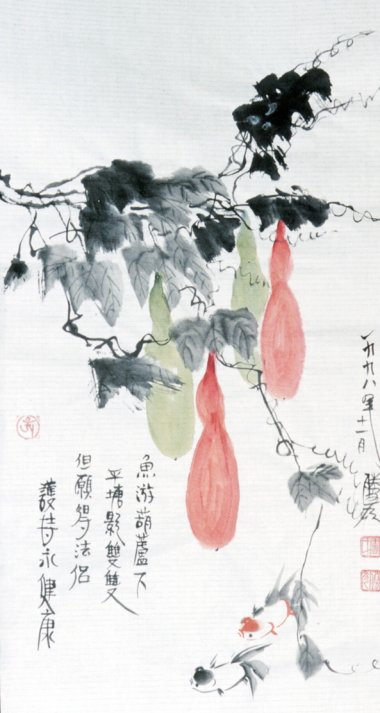 一九九八年十一月
魚游葫蘆下
平塘影雙雙
但願得法侶
護持永健康